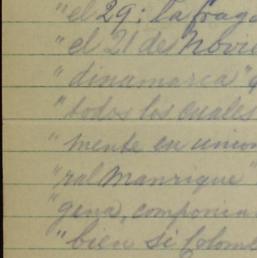 "el 29; la fraga
"el 21 de Novie
"dinamarca"
"todos los cuales
"mente en union
"ral Manrique"
"gena, componia
"bien si Colom